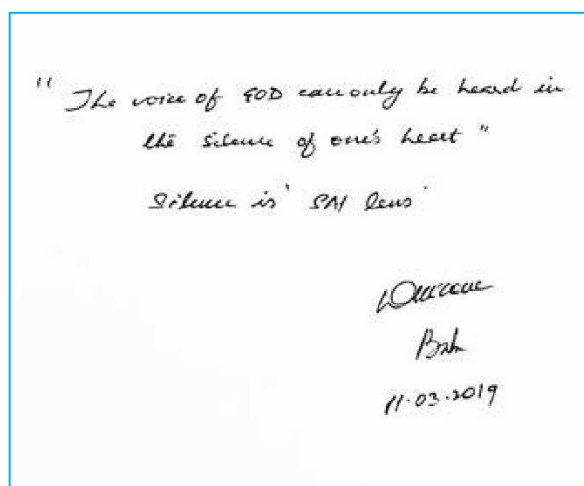 "The voice of GOD can only be heard in
the silence of one's heart"
Silence is 'SAI lens'
11.03.2019